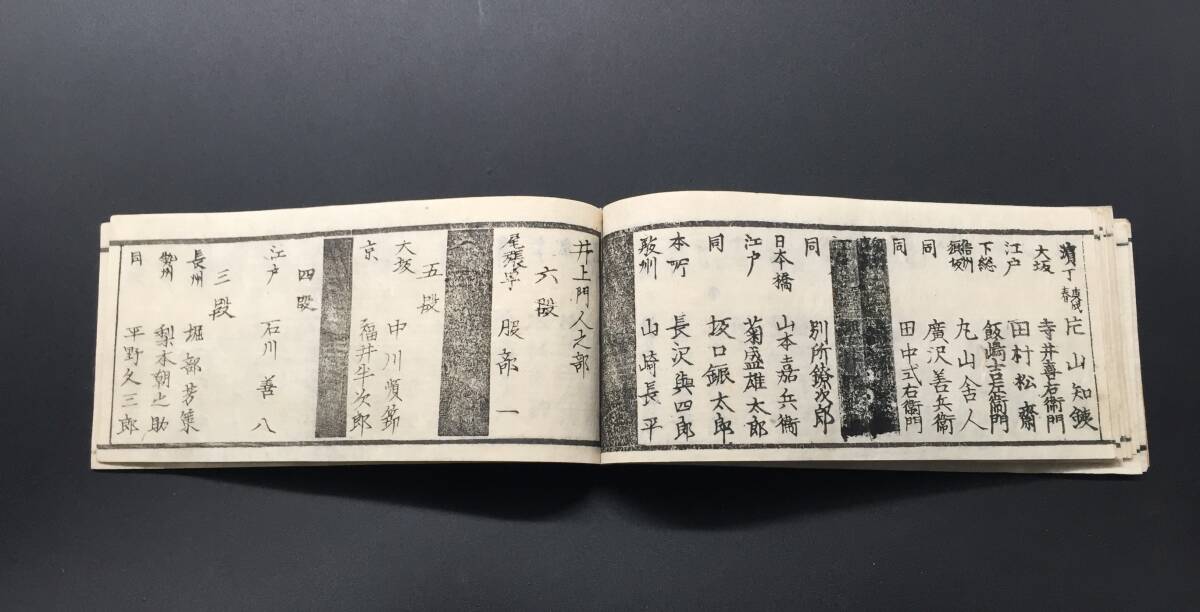 濱丁 片山知鉄
大坂 寺井喜右衛門
江戸 田村松齋
下総 飯嶋吉左衛門
丸山舎人
同 廣沢善兵衛
同 田中式右衛門
同 別所鐐次郎
日本橋 山本嘉兵衛
江戸 菊盛雄太郎
同 坂口鎮太郎
本町 長沢與四郎
駿州 山崎長平
井上門人之部
六段
尾張寺 服部一
五段
大坂 中川順節
京 福井半次郎
四段
江戸 石川善八
三段
長州 堀部芳策
勢州 梨本朝之助
同 平野久三郎